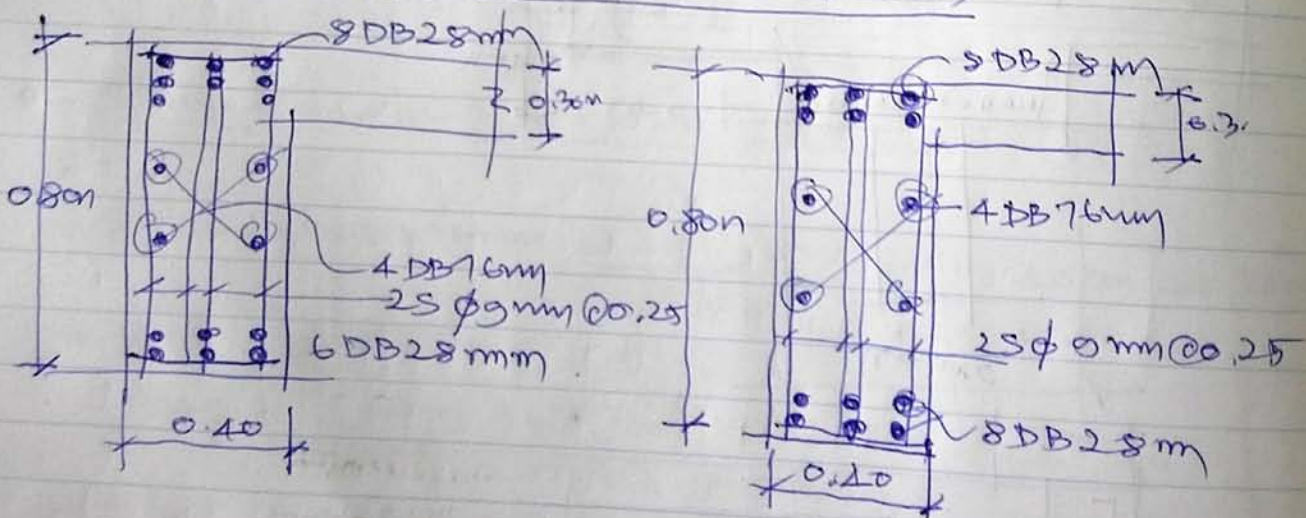 8DB28mm
0.30m
0.80m
4DB16mm
2S φ9mm@0.25
6DB28mm
0.40
8DB28m
0.3
0.80m
4DB16mm
2S φ9mm@0.25
8DB28m
0.40